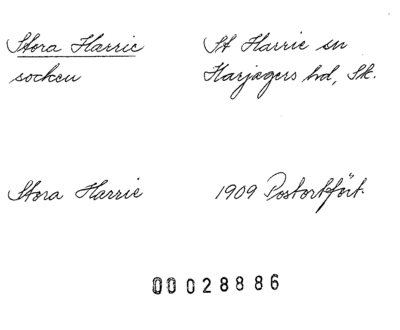 Stora Harrie St Harrie sn
socken Harjagers hd, Sk.
Stora Harrie 1909 Postortfört.
00028886